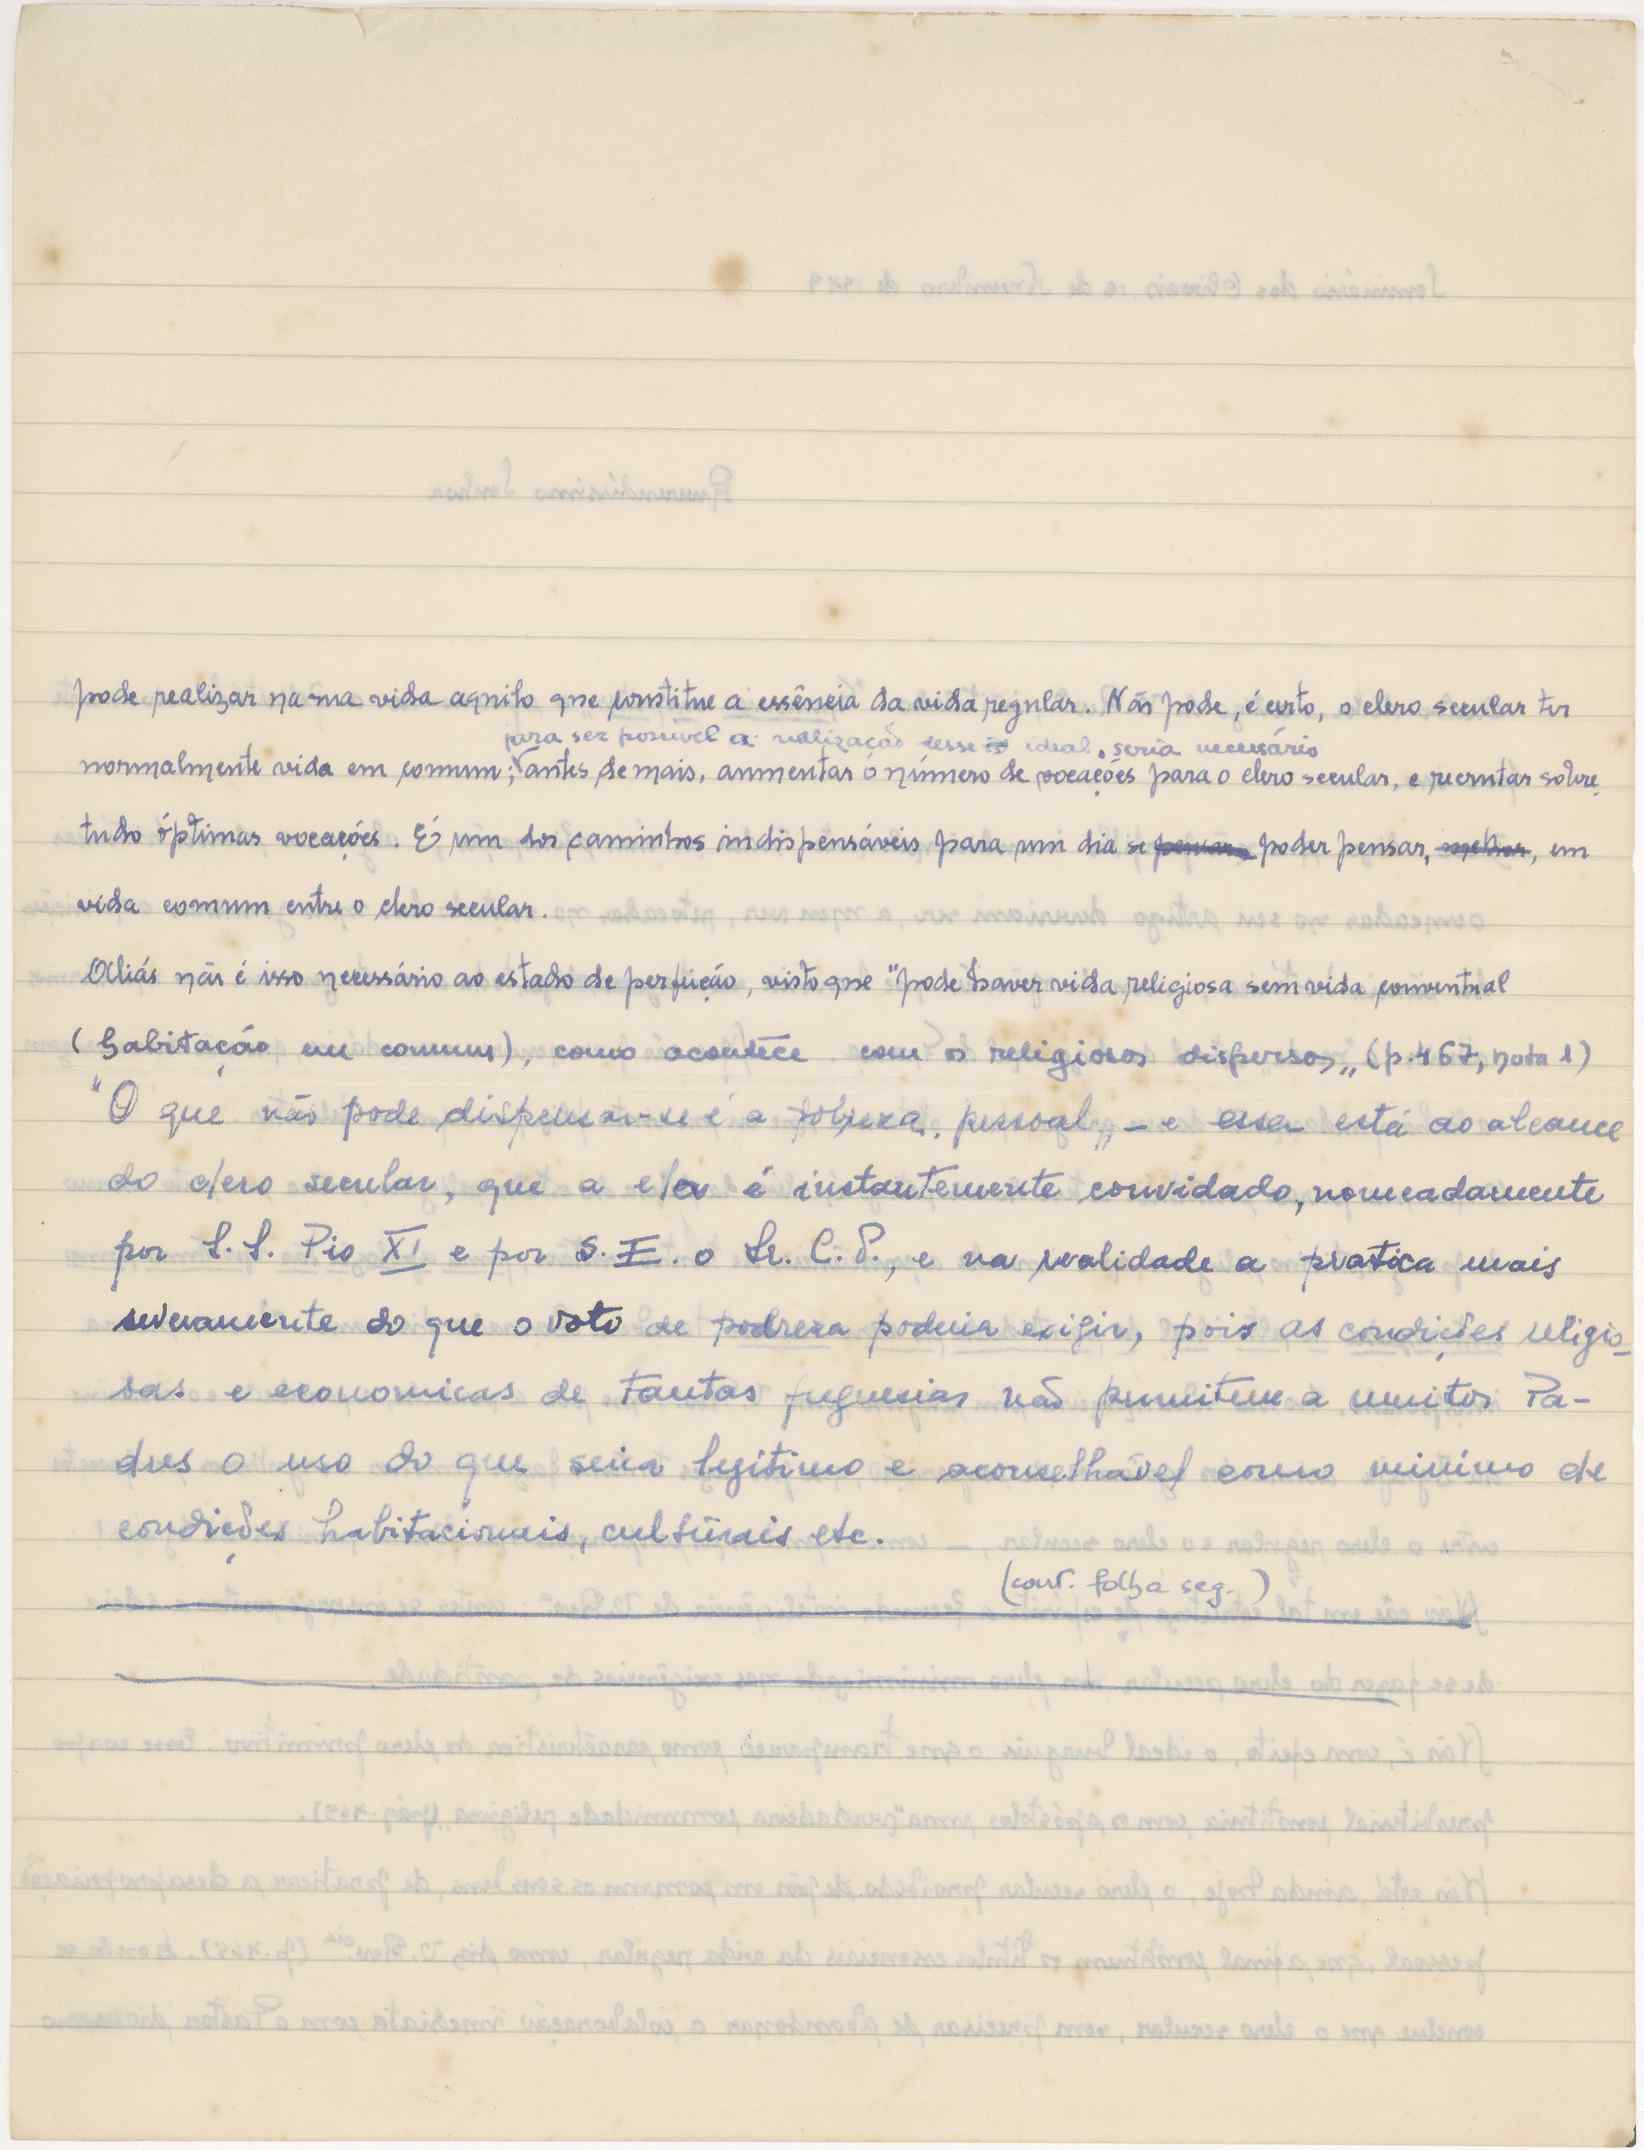 pode realizar na sua vida aquilo que constitue a essência da vida regular. Não pode, é certo, o clero secular ter
para ser possivel a realização desse ideal, seria necessário
normalmente vida em comum; antes de mais, aumentar o número de vocações para o clero secular, e recrutar sobre-
tudo óptimas vocações. É um dos caminhos indispensáveis para um dia se pensar poder pensar, melhor, em
vida comum entre o clero secular.
Aliás não é isso necessário ao estado de perfeição, visto que "pode haver vida religiosa sem vida conventual
(habitação em comum), como acontece com os religiosos dispersos" (p. 467, nota 1)
"O que não pode dispensar-se é a pobreza pessoal" – e essa está ao alcance
do clero secular, que a ela é instantemente convidado, nomeadamente
por S. S. Pio XI e por S. E. o Sr. C. P., e na realidade a pratica mais
severamente do que o voto de pobreza poderia exigir, pois as condições religio-
sas e economicas de tantas freguesias não permitem a muitos Pa-
dres o uso do que seria legitimo e aconselhável como minimo de
condições habitacionais, culturais etc.
(cont. folha seg.)